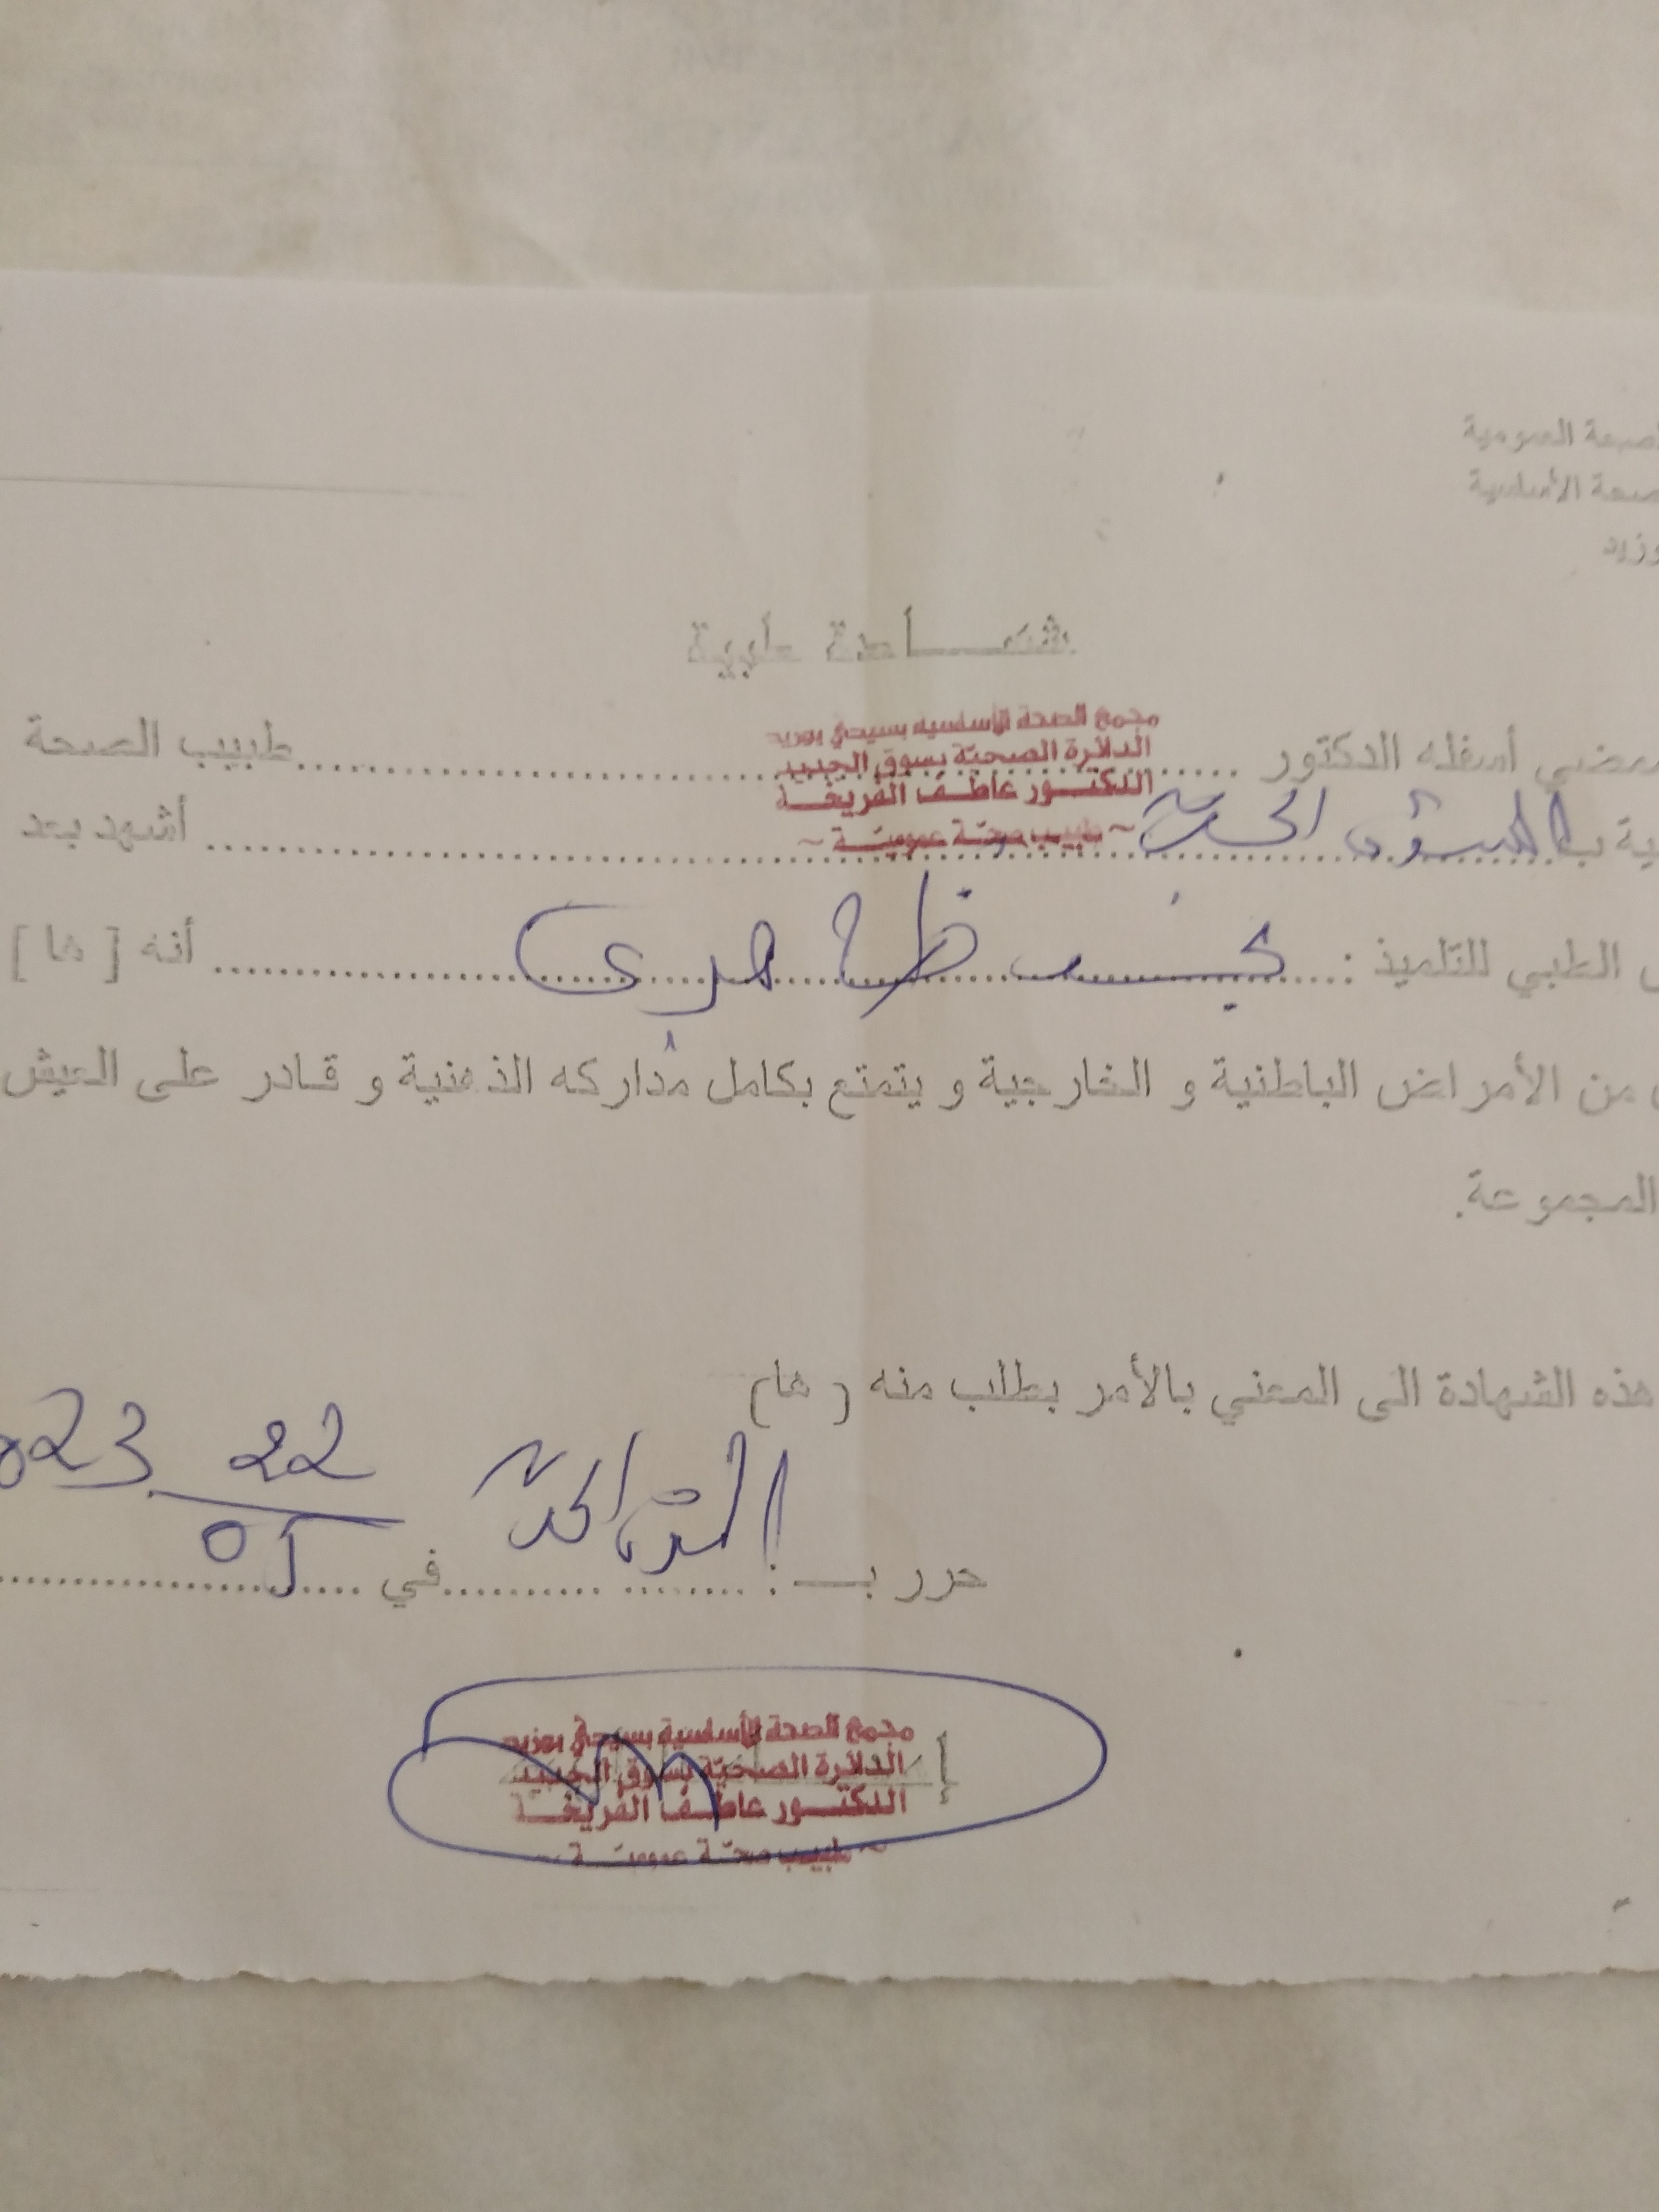 الصحة العمومية
الصحة الأساسية
وزيد
شهــــادة طبية
مجمع الصحة الأساسية بسيدي بوزيد
الدائرة الصحيّة بسوق الجديد
الدكتــور عاطــف الفريخــة
~ طبيب صحـّـة عموميـّـة ~
ممضي أسفله الدكتور ........ طبيب الصحة
ية بـ السوق الجديد ........ أشهد بعد
الطبي للتلميذ : ........ ظاهري ........ أنه [ ها ]
من الأمراض الباطنية و الخارجية و يتمتع بكامل مداركه الذهنية و قادر على العيش
المجموعة.
هذه الشهادة الى المعني بالأمر بطلب منه ( ها)
حرر بــ : ........ في 22 / 05 023
مجمع الصحة الأساسية بسيدي بوزيد
الدائرة الصحيّة بسوق الجديد
الدكتــور عاطــف الفريخــة
~ طبيب صحـّـة عموميـّـة ~